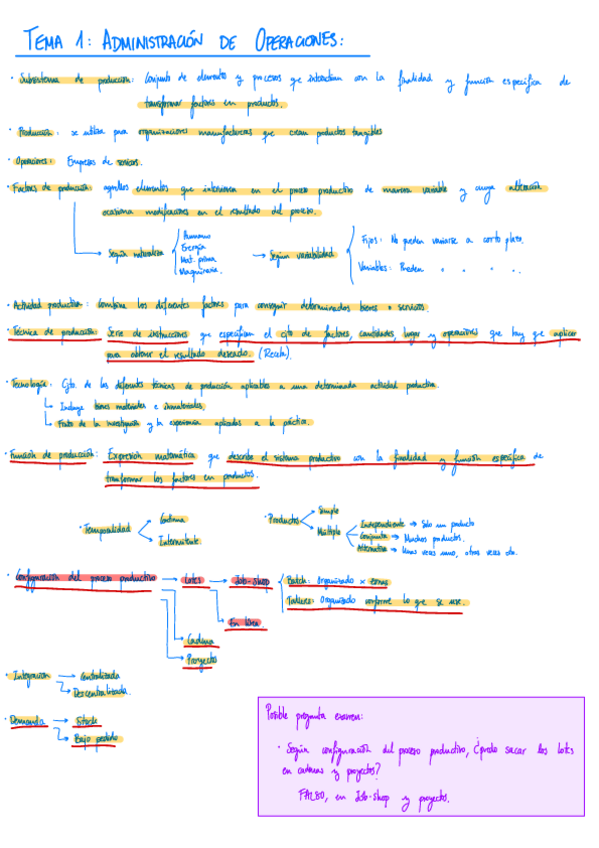 TEMA 1: ADMINISTRACIÓN DE OPERACIONES:
· Subsistema de producción: Conjunto de elementos y procesos que interactúan con la finalidad y función específica de
transformar factores en productos.
· Producción: se utiliza para organizaciones manufactureras que crean productos tangibles
· Operaciones: Empresas de servicios.
· Factores de producción: aquellos elementos que intervienen en el proceso productivo de manera variable y cuya alteración
ocasiona modificaciones en el resultado del proceso.
Según naturaleza
Humano
Energía
Mat. prima
Maquinaria.
→ Según variabilidad
Fijos: No pueden variarse a corto plazo.
Variables: Pueden " " " .
· Actividad productiva: combina los diferentes factores para conseguir determinados bienes o servicios.
· Técnica de producción: Serie de instrucciones que especifican el cjto de factores, cantidades, lugar y operaciones que hay que aplicar
para obtener el resultado deseado. (Receta).
· Tecnología: Cjto. de las diferentes técnicas de producción aplicables a una determinada actividad productiva.
Incluye bienes materiales e inmateriales.
Fruto de la investigación y la experiencia aplicados a la práctica.
· Función de producción: Expresión matemática que describe el sistema productivo con la finalidad y función específica de
transformar los factores en productos.
· Temporalidad
Continua
Intermitente
· Productos
Simple
Múltiple
Independiente → Sólo un producto
Conjunta → Muchos productos.
Alternativa → Unas veces uno, otras veces otro.
· Configuración del proceso productivo → Lotes → Job-Shop
Batch: Organizado x
Talleres: Organizado conforme lo que se use.
En línea.
Cadena
Proyecto
· Integración → Centralizada
Descentralizada.
· Demanda → Stock
Bajo pedido
Posible pregunta examen:
· Según configuración del proceso productivo, ¿puedo sacar los lotes
en cadenas y proyectos?
FALSO, en Job-shop y proyectos.